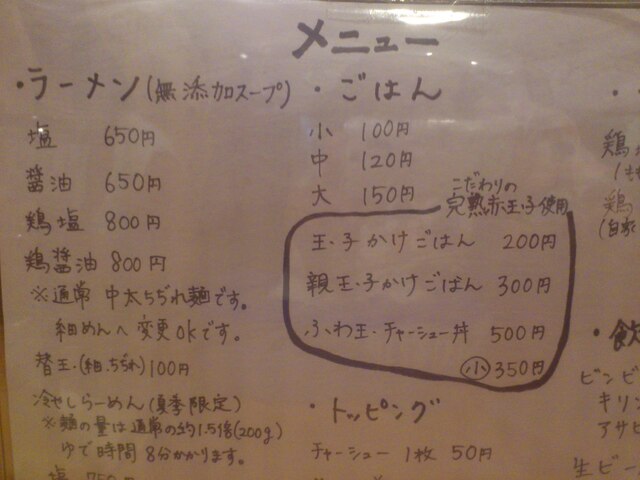 メニュー
・ラーメン(無添加スープ)
塩 650円
醤油 650円
鶏塩 800円
鶏醤油 800円
※通常 中太ちぢれ麺です。
細めんへ変更OKです。
替玉・(細.ちぢれ)100円
冷やしらーめん(夏季限定)
※麺の量は通常の約1.5倍(200g)
ゆで時間 8分かかります。
塩 750円
・ごはん
小 100円
中 120円
大 150円
こだわりの
完熟赤玉子使用
玉子かけごはん 200円
親玉子かけごはん 300円
ふわ玉・チャーシュー丼 500円
小 350円
・トッピング
チャーシュー 1枚 50円
鶏
鶏
(自家
・飲
ビンビ
キリン
アサヒ
生ビー